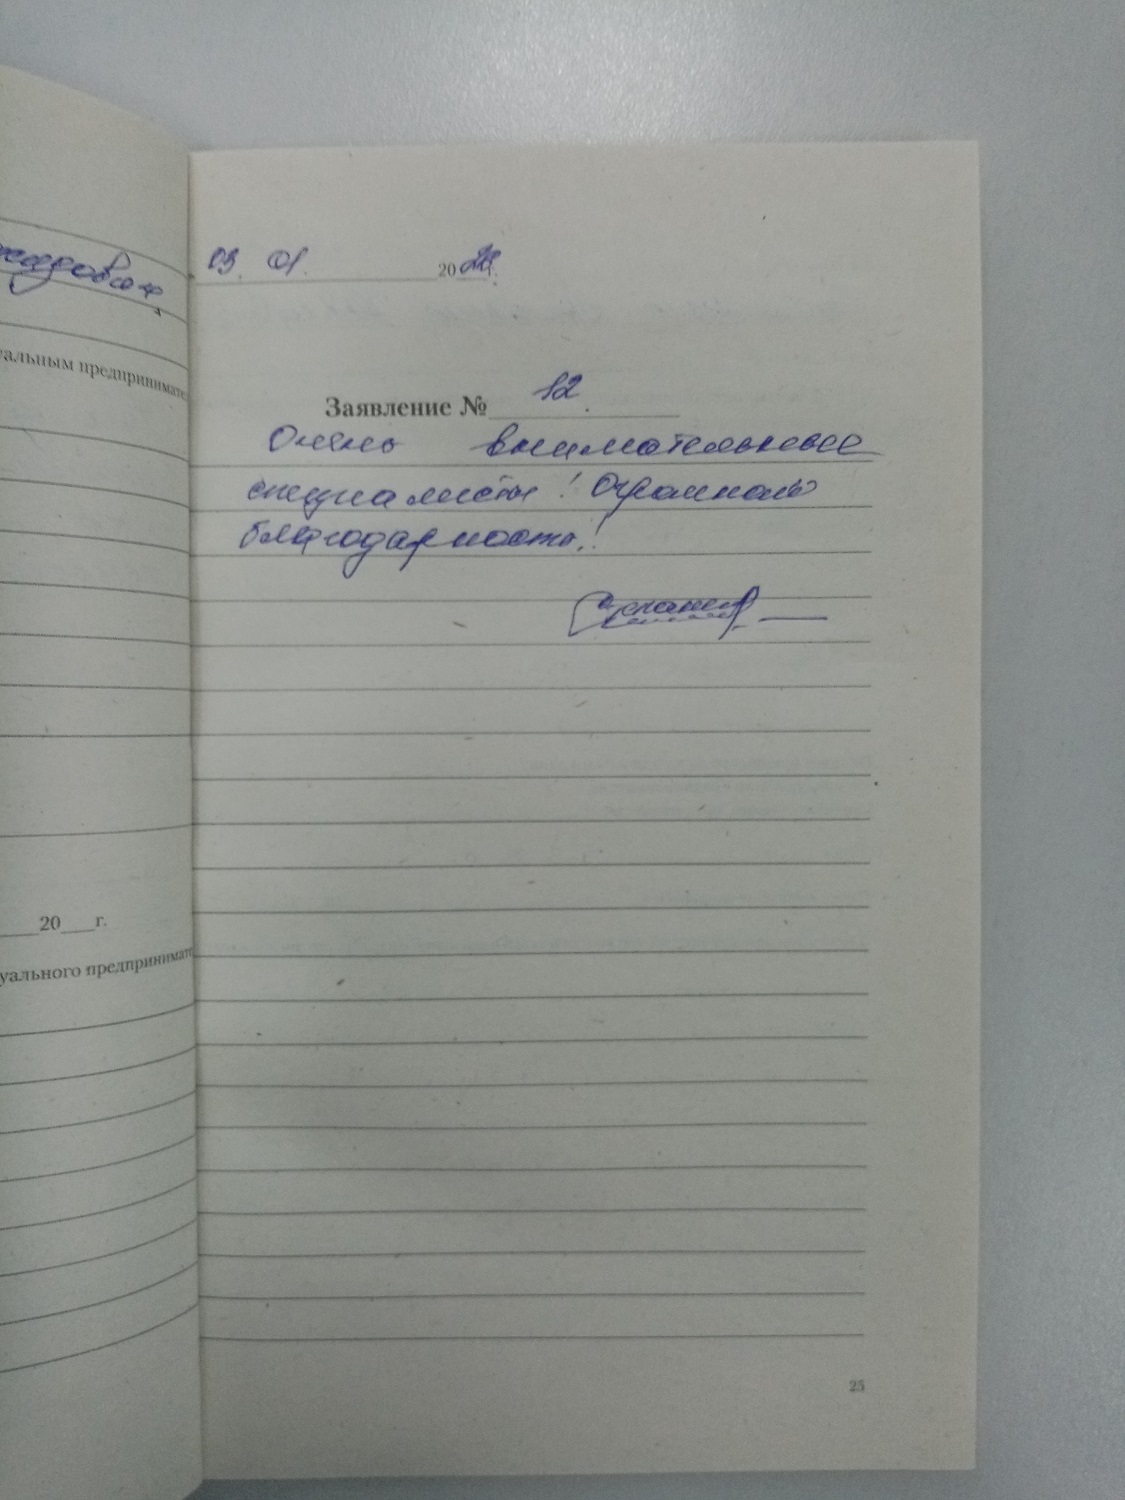 уальным предпринимате
20___г.
уального предпринимат
03. 01. 20 г.
Заявление № 12.
Очень внимательные
специалисты! Огромная
благодарность!
25